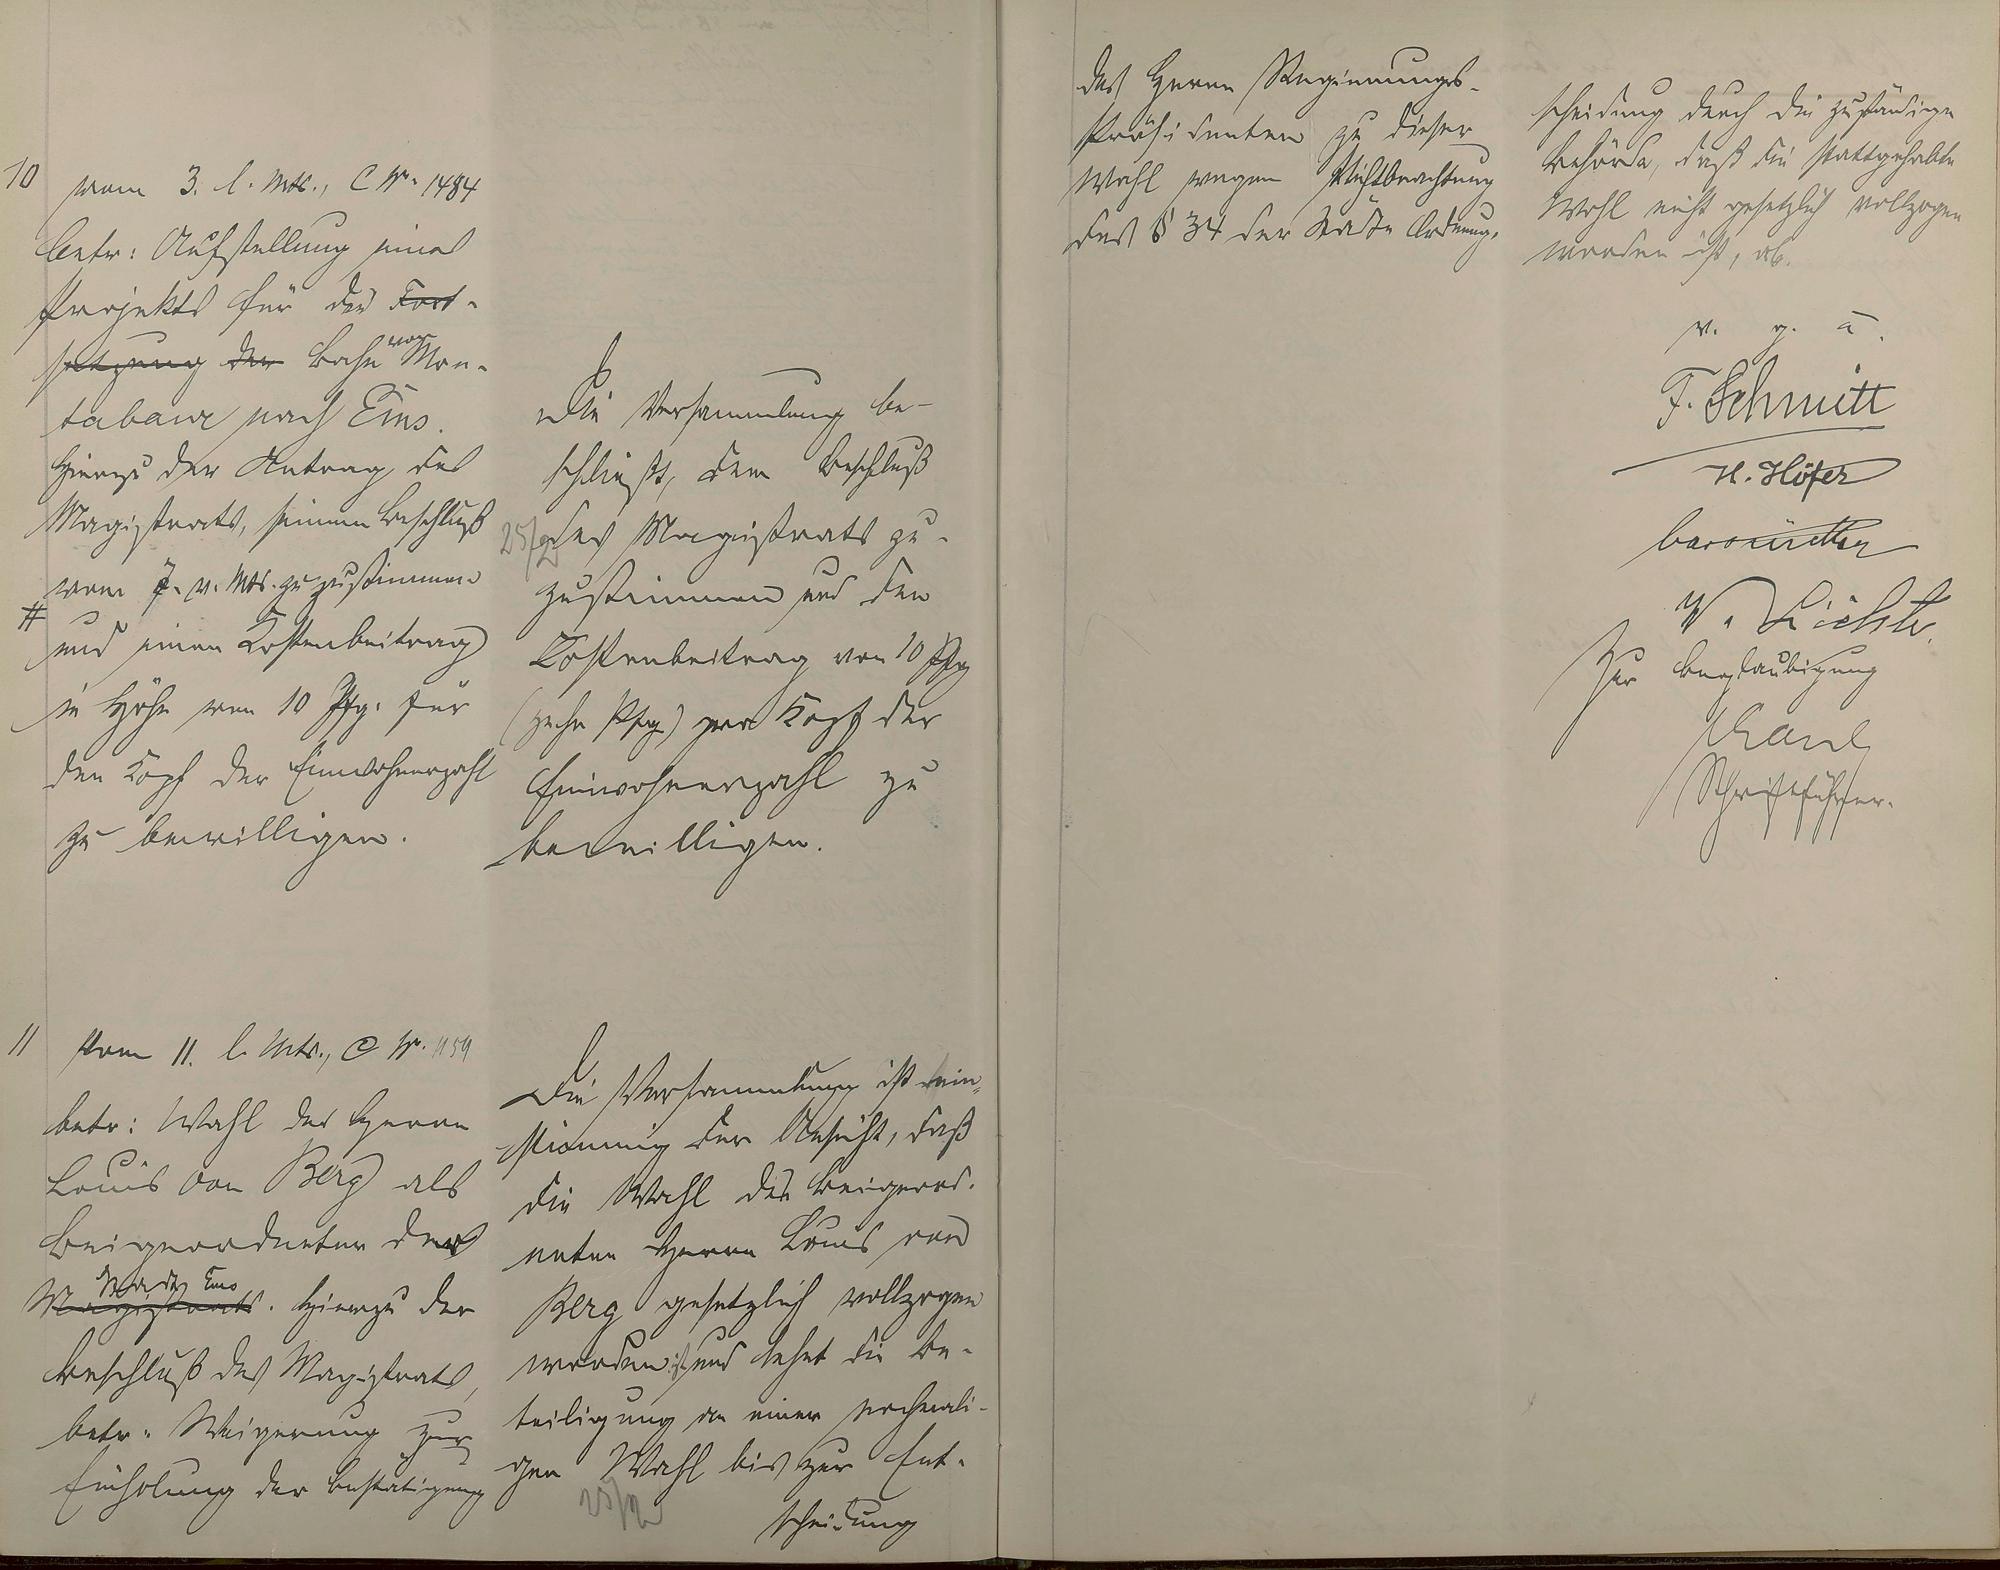 10 vom 3. l. Mts., C Nr. 1484
betr: Aufstellung eines
Projekts für die Fort-
setzung der Bahn von Mon-
tabaur nach Ems.
Hierzu der Antrag des
Magistrats, seinem Beschluß
vom 7. v. Mts. zuzustimmen
# und einen Kostenbeitrag
in Höhe von 10 Pfg. für
den Kopf der Einwohnerzahl
zu bewilligen.
Die Versammlung be-
schließt, dem Beschluß
des Magistrats zu-
25/2
zustimmen und den
Kostenbeitrag von 10 Pfg
(zehn Pfg) pro Kopf der
Einwohnerzahl zu
bewilligen.
11 Vom 11. l. Mts., C Nr. 1159
betr: Wahl des Herrn
Louis von Berg als
Beigeordneter der
Stadt Ems
Magistrats. Hierzu der
Beschluß des Magistrats,
betr. Weigerung zur
Einholung der Bestätigung
Die Versammlung ist ein-
stimmig der Ansicht, daß
die Wahl des Beigeord-
neten Herrn Louis von
Berg gesetzlich vollzogen
worden ist und lehnt die Be-
teiligung an einer nochmali-
gen Wahl bis zur Ent-
25/2
scheidung
des Herrn Regierungs-
Präsidenten zu dieser
Wahl wegen Nichtbeachtung
des § 34 der Städte Ordnung.
scheidung durch die zuständige
Behörde, daß die stattgehabte
Wahl nicht gesetzlich vollzogen
worden ist, ab.
v. g. u.
F. Schmitt
H. Höfer
W. Lichte
Zur Beglaubigung
Schriftführer.